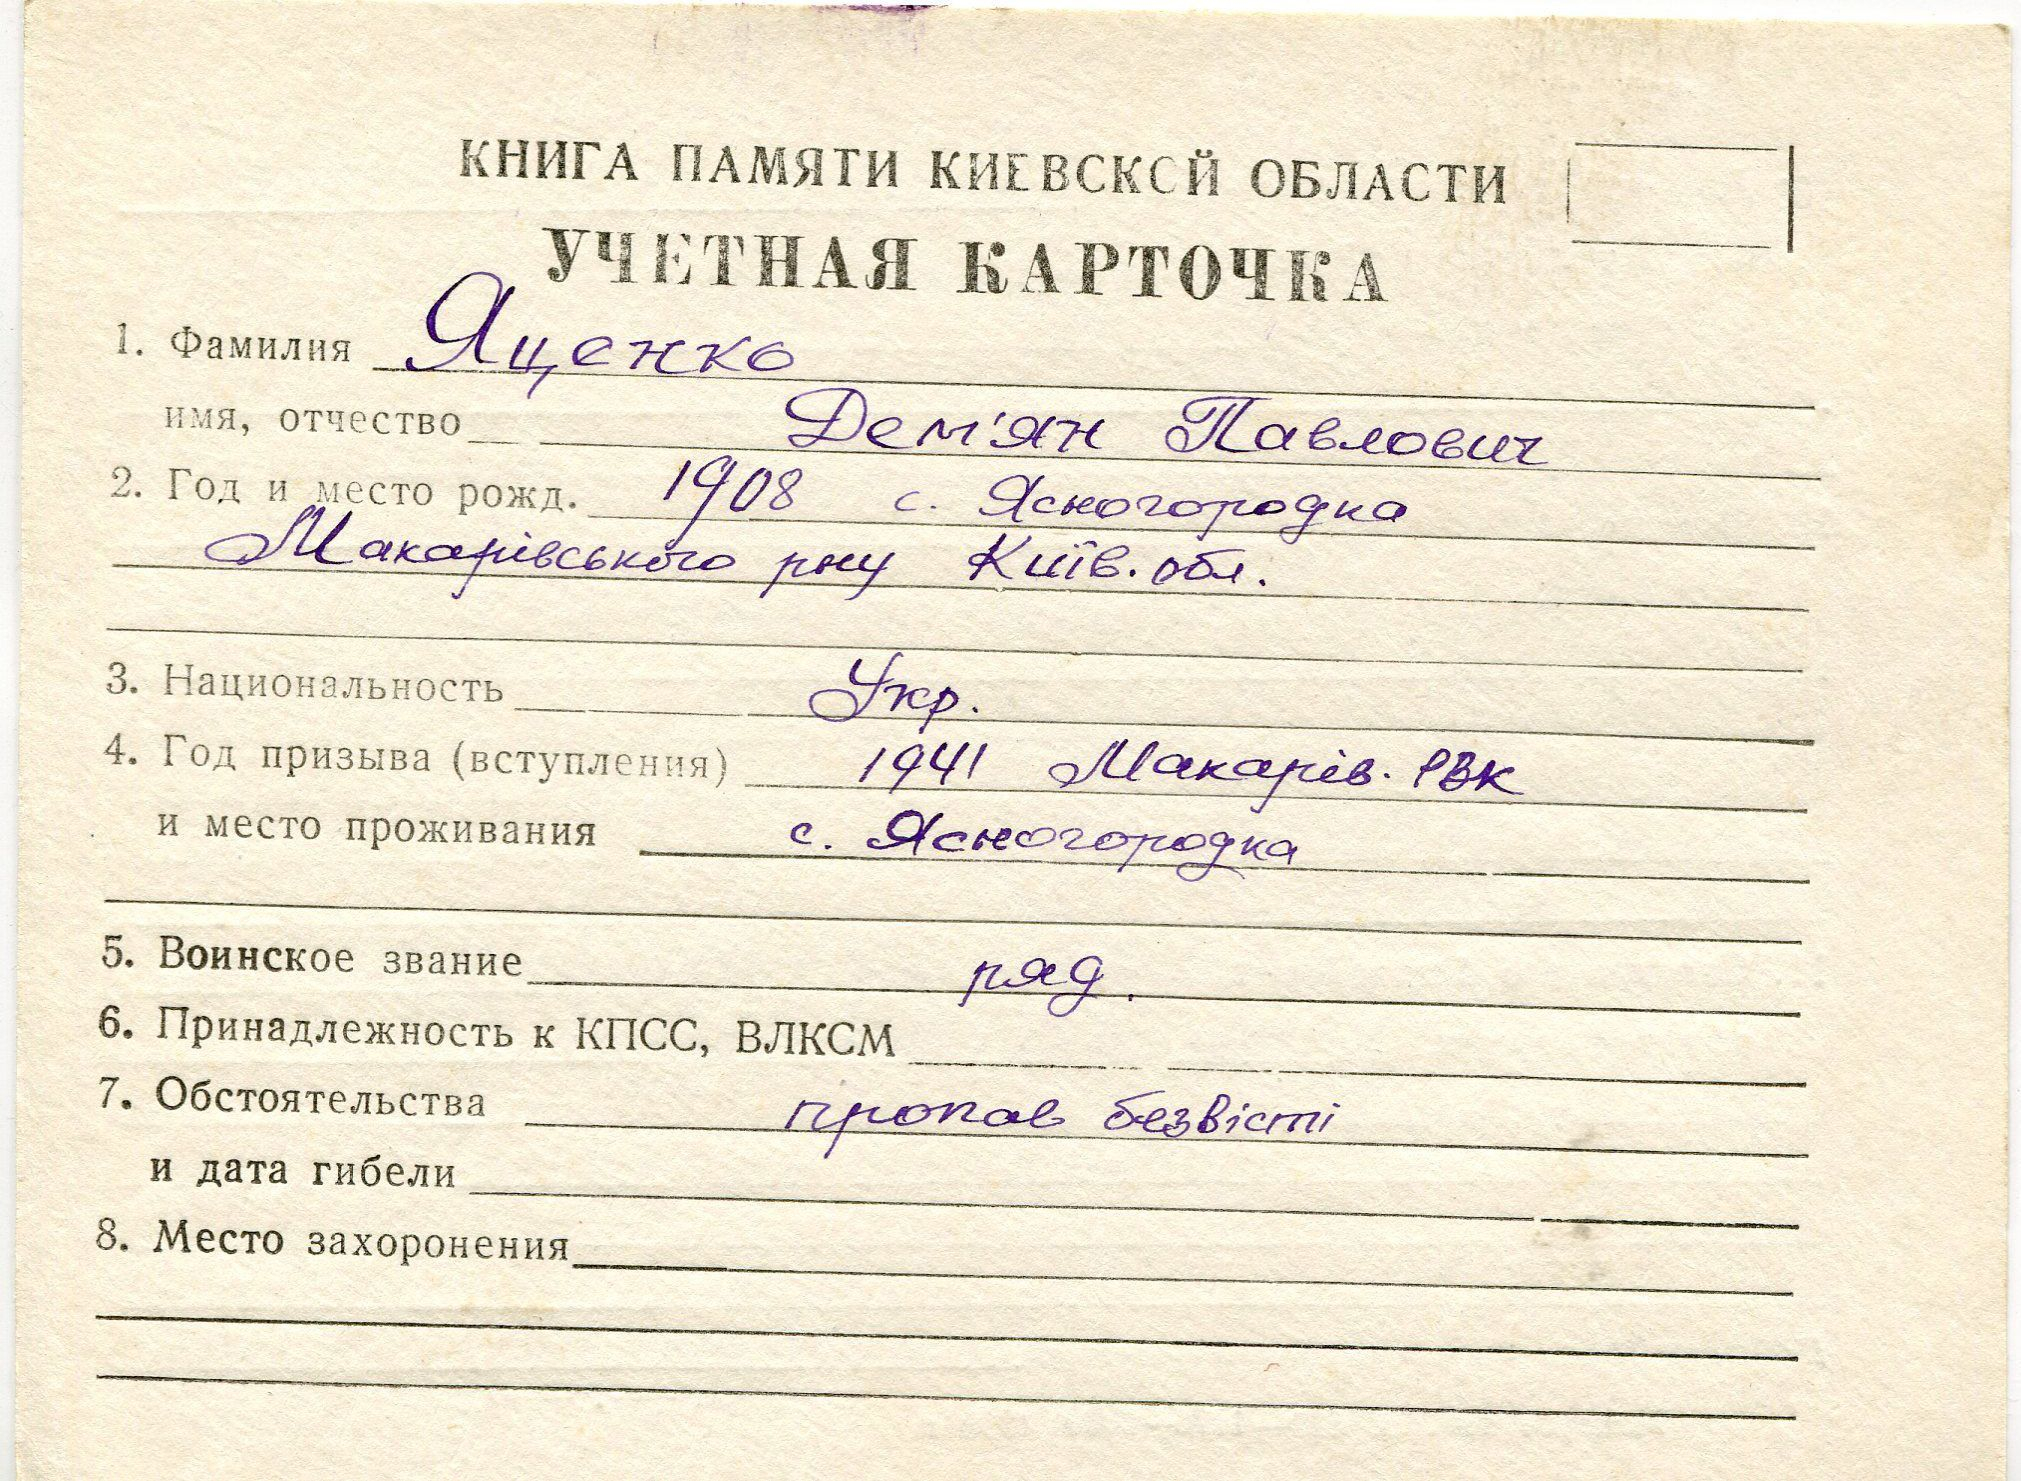 КНИГА ПАМЯТИ КИЕВСКОЙ ОБЛАСТИ
УЧЕТНАЯ КАРТОЧКА
1. Фамилия Яценко
имя, отчество Дем'ян Павлович
2. Год и место рожд. 1908 с. Ясногородка
Макарівського рну Київ. обл.
3. Национальность Укр.
4. Год призыва (вступления) 1941 Макарів. РВК
и место проживания с. Ясногородка
5. Воинское звание ряд.
6. Принадлежность к КПСС, ВЛКСМ
7. Обстоятельства пропав безвісті
и дата гибели
8. Место захоронения